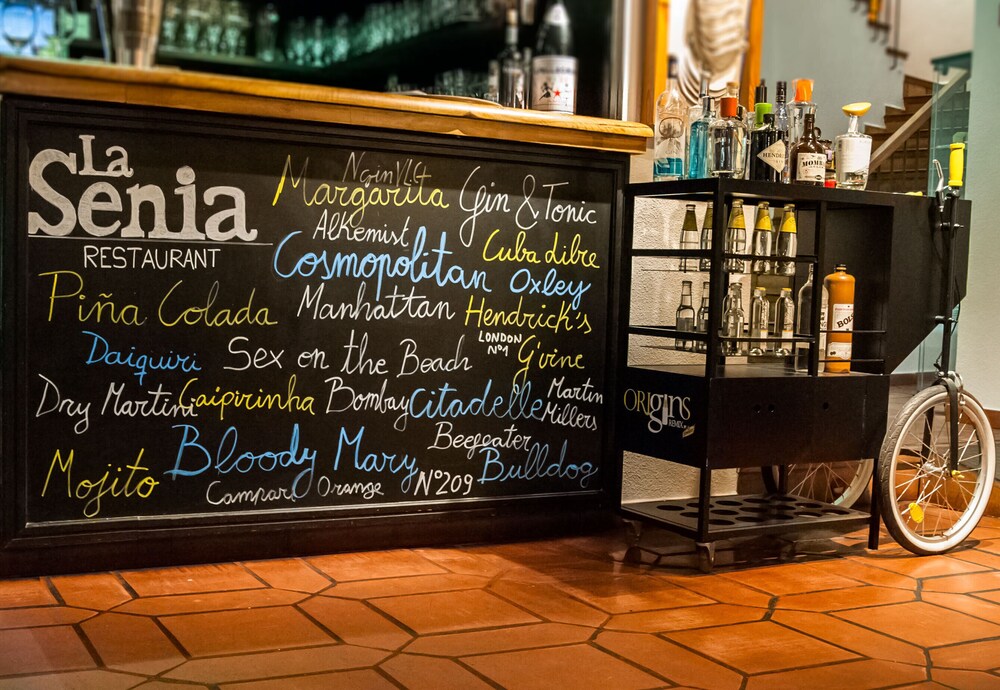 La
Senia
RESTAURANT
NginVLGt
Margarita
Gin & Tonic
Alkemist
Cuba libre
Cosmopolitan
Oxley
Piña Colada
Manhattan
Hendrick's
LONDON
Nº1
G'vine
Daiquiri
Sex on the Beach
Dry Martini
Caipirinha
Bombay
Citadelle
Martin
Millers
Beefeater
Bloody Mary
Bulldog
Mojito
Campari Orange
Nº209
ORIGINS
REMIX
HENDRICK'S
MOMBA
BOLS